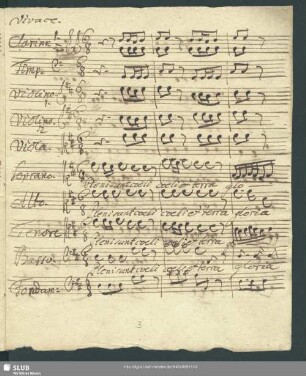 Vivace.
Clarini
Timp.
Violino. 1.
Violino. 2
Viola.
Soprano.
Pleni sunt coeli coeli et terra glo
Alto.
Pleni sunt coeli coeli et terra gloria
Tenore
Pleni sunt coeli coeli et terra
Basso.
Pleni sunt coeli coeli et terra gloria
Fondam:
3
SLUB
Wir führen Wissen.